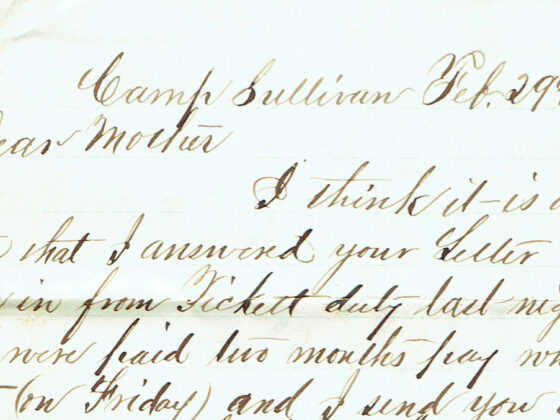 Camp Sullivan Feb. 29
ear Mother
I think it is
that I answered your Letter
in from Tickett duty last nig
were paid two months pay w
(on Friday) and I send you